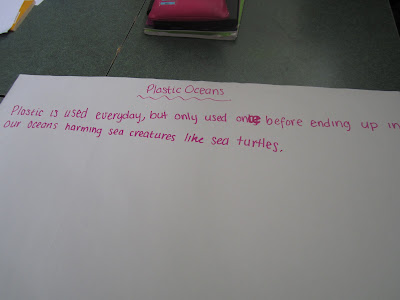 Plastic Oceans
Plastic is used everyday, but only used once before ending up in
our oceans harming sea creatures like sea turtles.